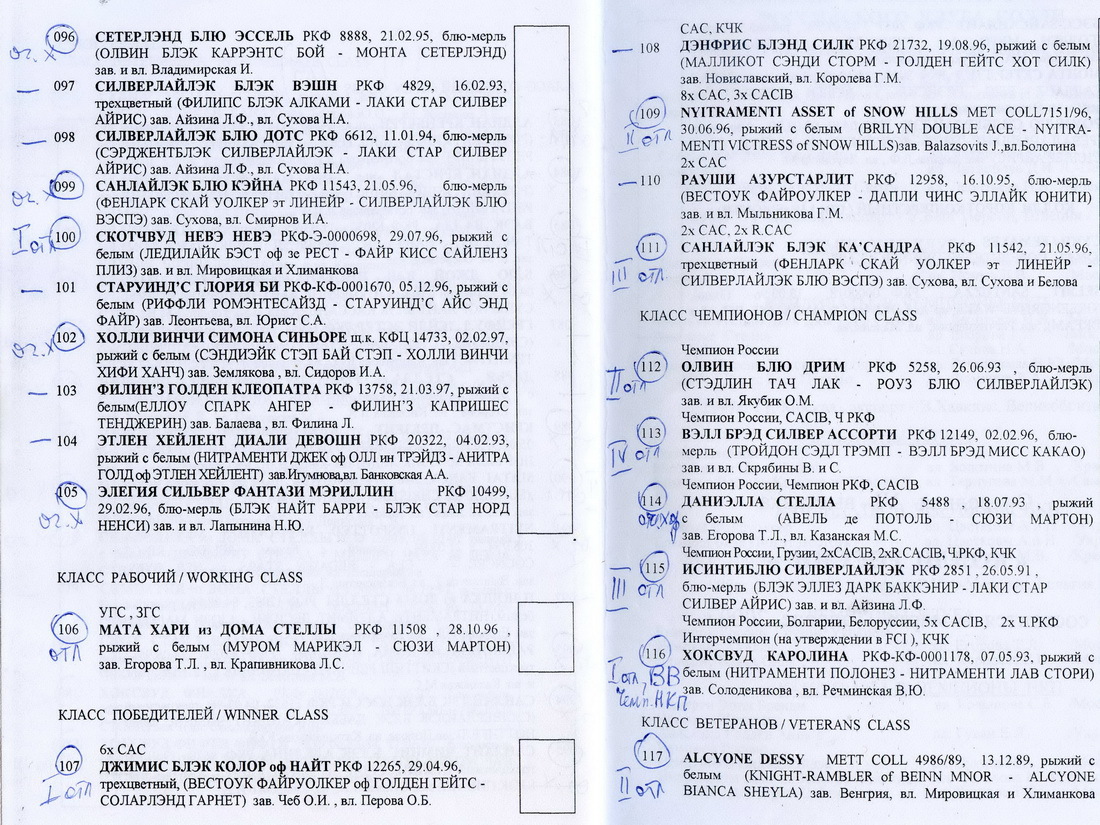 096 СЕТЕРЛЭНД БЛЮ ЭССЕЛЬ РКФ 8888, 21.02.95, блю-мерль
оч.х (ОЛВИН БЛЭК КАРРЭНТС БОЙ - МОНТА СЕТЕРЛЭНД)
зав. и вл. Владимирская И.
097 СИЛВЕРЛАЙЛЭК БЛЭК ВЭШН РКФ 4829, 16.02.93,
трехцветный (ФИЛИПС БЛЭК АЛКАМИ - ЛАКИ СТАР СИЛВЕР
АЙРИС) зав. Айзина Л.Ф., вл. Сухова Н.А.
098 СИЛВЕРЛАЙЛЭК БЛЮ ДОТС РКФ 6612, 11.01.94, блю-мерль
(СЭРДЖЕНТБЛЭК СИЛВЕРЛАЙЛЭК - ЛАКИ СТАР СИЛВЕР
АЙРИС) зав. Айзина Л.Ф., вл. Сухова Н.А.
099 САНЛАЙЛЭК БЛЮ КЭЙНА РКФ 11543, 21.05.96, блю-мерль
оч.х (ФЕНЛАРК СКАЙ УОЛКЕР эт ЛИНЕЙР - СИЛВЕРЛАЙЛЭК БЛЮ
ВЭСПЭ) зав. Сухова, вл. Смирнов И.А.
I отл 100 СКОТЧВУД НЕВЭ НЕВЭ РКФ-Э-0000698, 29.07.96, рыжий с
белым (ЛЕДИЛАЙК БЭСТ оф зе РЕСТ - ФАЙР КИСС САЙЛЕНЗ
ПЛИЗ) зав. и вл. Мировицкая и Хлиманкова
101 СТАРУИНД'С ГЛОРИЯ БИ РКФ-КФ-0001670, 05.12.96, рыжий с
белым (РИФФЛИ РОМЭНТЕСАЙЗД - СТАРУИНД'С АЙС ЭНД
ФАЙР) зав. Леонтьева, вл. Юрист С.А.
102 ХОЛЛИ ВИНЧИ СИМОНА СИНЬОРЕ щ.к. КФЦ 14733, 02.02.97,
оч.х рыжий с белым (СЭНДИЭЙК СТЭП БАЙ СТЭП - ХОЛЛИ ВИНЧИ
ХИФИ ХАНЧ) зав. Землякова , вл. Сидоров И.А.
103 ФИЛИН'З ГОЛДЕН КЛЕОПАТРА РКФ 13758, 21.03.97, рыжий с
белым(ЕЛЛОУ СПАРК АНГЕР - ФИЛИН'З КАПРИШЕС
ТЕНДЖЕРИН) зав. Балаева , вл. Филина Л.
104 ЭТЛЕН ХЕЙЛЕНТ ДИАЛИ ДЕВОШН РКФ 20322, 04.02.93,
рыжий с белым (НИТРАМЕНТИ ДЖЕК оф ОЛЛ ин ТРЭЙДЗ - АНИТРА
ГОЛД оф ЭТЛЕН ХЕЙЛЕНТ) зав.Игумнова,вл. Банковская А.А.
105 ЭЛЕГИЯ СИЛЬВЕР ФАНТАЗИ МЭРИЛЛИН РКФ 10499,
оч.х 29.02.96, блю-мерль (БЛЭК НАЙТ БАРРИ - БЛЭК СТАР НОРД
НЕНСИ) зав. и вл. Лапынина Н.Ю.
КЛАСС РАБОЧИЙ / WORKING CLASS
УГС , ЗГС
106 МАТА ХАРИ из ДОМА СТЕЛЛЫ РКФ 11508 , 28.10.96 ,
отл рыжий с белым (МУРОМ МАРИКЭЛ - СЮЗИ МАРТОН)
зав. Егорова Т.Л. , вл. Крапивникова Л.С.
КЛАСС ПОБЕДИТЕЛЕЙ / WINNER CLASS
6х САС
107 ДЖИМИС БЛЭК КОЛОР оф НАЙТ РКФ 12265, 29.04.96,
I отл трехцветный, (ВЕСТОУК ФАЙРУОЛКЕР оф ГОЛДЕН ГЕЙТС -
СОЛАРЛЭНД ГАРНЕТ) зав. Чеб О.И. , вл. Перова О.Б.
САС, КЧК
108 ДЭНФРИС БЛЭНД СИЛК РКФ 21732, 19.08.96, рыжий с белым
(МАЛЛИКОТ СЭНДИ СТОРМ - ГОЛДЕН ГЕЙТС ХОТ СИЛК)
зав. Новиславский, вл. Королева Г.М.
8х САС, 3х CACIB
109 NYITRAMENTI ASSET of SNOW HILLS MET COLL7151/96,
II отл 30.06.96, рыжий с белым (BRILYN DOUBLE ACE - NYITRA-
MENTI VICTRESS of SNOW HILLS)зав. Balazsovits J.,вл.Болотина
2х САС
110 РАУШИ АЗУРСТАРЛИТ РКФ 12958, 16.10.95, блю-мерль
(ВЕСТОУК ФАЙРОУЛКЕР - ДАПЛИ ЧИНС ЭЛЛАЙК ЮНИТИ)
зав. и вл. Мыльникова Г.М.
2х САС, 2х R.CAC
111 САНЛАЙЛЭК БЛЭК КА'САНДРА РКФ 11542, 21.05.96,
III отл трехцветный (ФЕНЛАРК СКАЙ УОЛКЕР эт ЛИНЕЙР -
СИЛВЕРЛАЙЛЭК БЛЮ ВЭСПЭ) зав. Сухова, вл. Сухова и Белова
КЛАСС ЧЕМПИОНОВ / CHAMPION CLASS
Чемпион России
112 ОЛВИН БЛЮ ДРИМ РКФ 5258, 26.06.93 , блю-мерль
II отл (СТЭДЛИН ТАЧ ЛАК - РОУЗ БЛЮ СИЛВЕРЛАЙЛЭК)
зав. и вл. Якубик О.М.
Чемпион России, CACIB, Ч РКФ
113 ВЭЛЛ БРЭД СИЛВЕР АССОРТИ РКФ 12149, 02.02.96, блю-
IV отл мерль (ТРОЙДОН СЭДЛ ТРЭМП - ВЭЛЛ БРЭД МИСС КАКАО)
зав. и вл. Скрябины В. и С.
Чемпион России, Чемпион РКФ, CACIB
114 ДАНИЭЛЛА СТЕЛЛА РКФ 5488 , 18.07.93 , рыжий
с белым (АВЕЛЬ де ПОТОЛЬ - СЮЗИ МАРТОН)
зав. Егорова Т.Л., вл. Казанская М.С.
Чемпион России, Грузии, 2хCACIB, 2хR.CACIB, Ч.РКФ, КЧК
115 ИСИНТИБЛЮ СИЛВЕРЛАЙЛЭК РКФ 2851 , 26.05.91 ,
III отл блю-мерль (БЛЭК ЭЛЛЕЗ ДАРК БАККЭНИР - ЛАКИ СТАР
СИЛВЕР АЙРИС) зав. и вл. Айзина Л.Ф.
Чемпион России, Болгарии, Белоруссии, 5х CACIB, 2х Ч.РКФ
Интерчемпион (на утверждении в FCI ), КЧК
116 ХОКСВУД КАРОЛИНА РКФ-КФ-0001178, 07.05.93, рыжий с
I отл, ВВ белым (НИТРАМЕНТИ ПОЛОНЕЗ - НИТРАМЕНТИ ЛАВ СТОРИ)
Чемп. НКП зав. Солоденикова , вл. Речминская В.Ю.
КЛАСС ВЕТЕРАНОВ / VETERANS CLASS
117 ALCYONE DESSY METT COLL 4986/89, 13.12.89, рыжий с
II отл белым (KNIGHT-RAMBLER of BEINN MNOR - ALCYONE
BIANCA SHEYLA) зав. Венгрия, вл. Мировицкая и Хлиманкова